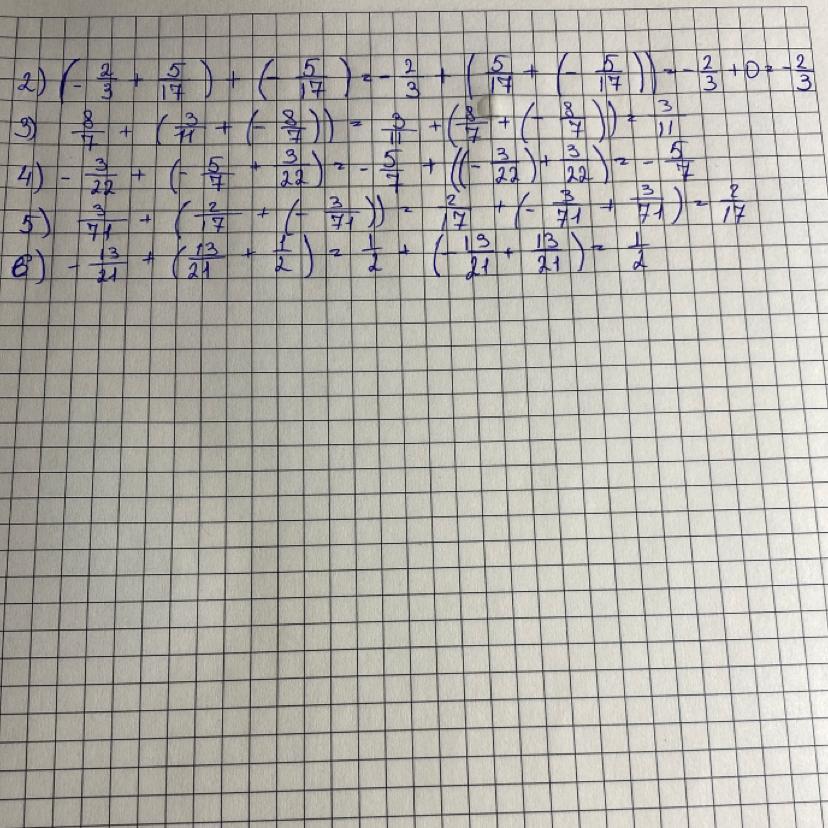 2) (-2/3 + 5/17) + (-5/17) = -2/3 + (5/17 + (-5/17)) = -2/3 + 0 = -2/3
3) 8/7 + (3/11 + (-8/7)) = 3/11 + (8/7 + (-8/7)) = 3/11
4) -3/22 + (-5/7 + 3/22) = -5/7 + ((-3/22) + 3/22) = -5/7
5) 3/71 + (2/17 + (-3/71)) = 2/17 + (-3/71 + 3/71) = 2/17
6) -13/21 + (13/21 + 1/2) = 1/2 + (-13/21 + 13/21) = 1/2